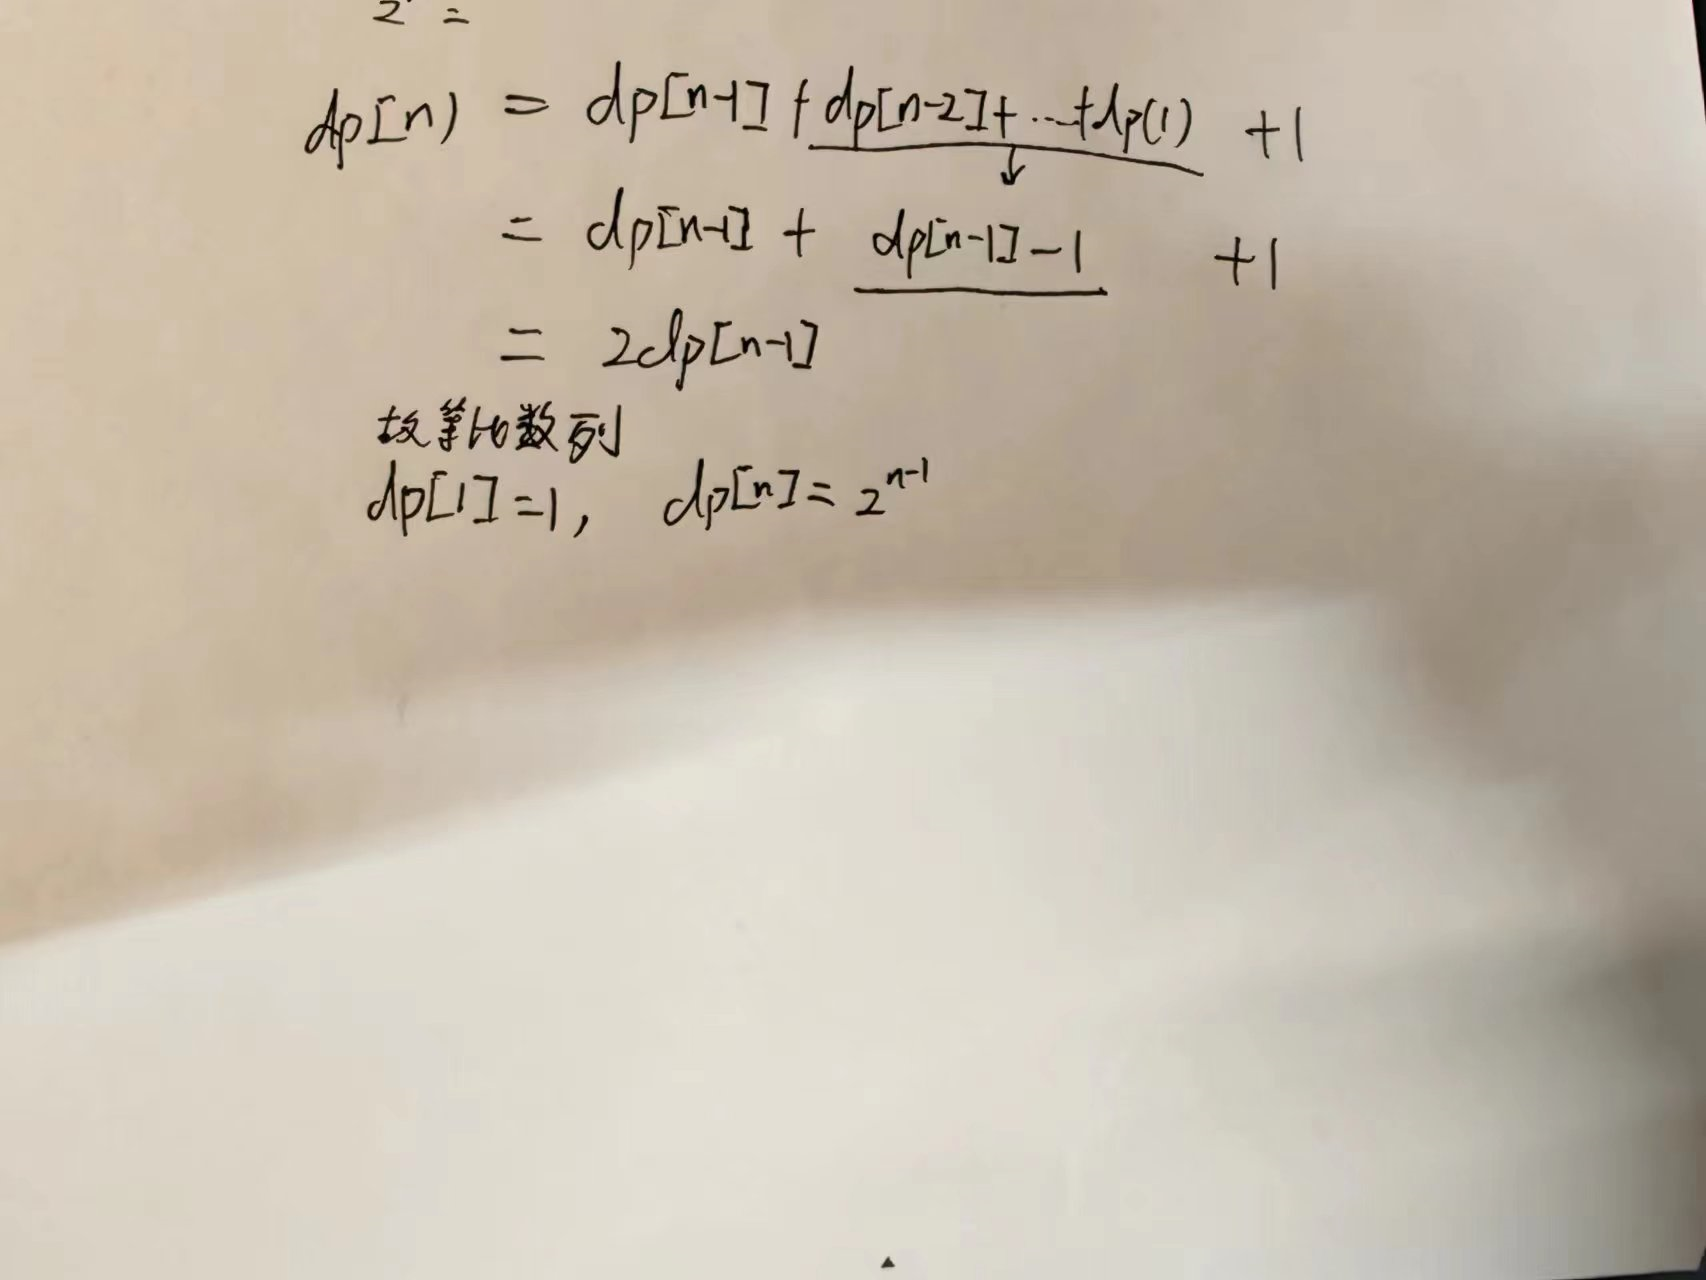 2 =
dp[n) = dp[n-1] + dp[n-2]+...+dp(1) +1
= dp[n-1] + dp[n-1]-1 +1
= 2dp[n-1]
故等比数列
dp[1]=1, dp[n]=2^{n-1}